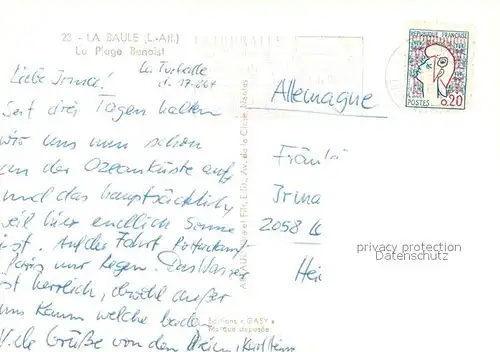 23 - LA BAULE (L.-Atl.)
La Plage Benoist
La Turballe
d. 17.
Liebe Irma!
Seit drei Tagen halten
wir uns nun schon
an der Ozeanküste auf
und das hauptsächlich
weil hier endlich Sonne
ist. Auf der Fahrt
Paris nur Regen. Das Wasser
ist herrlich, obwohl außer
uns kaum welche baden
Viele Grüße von den
Editions « GABY »
Marque déposée
et Fils, Edit., Av. de la Close, Nantes
REPUBLIQUE FRANÇAISE
POSTES 0,20
Allemagne
Fräulei
Irma
2058
Hei
privacy protection
Datenschutz